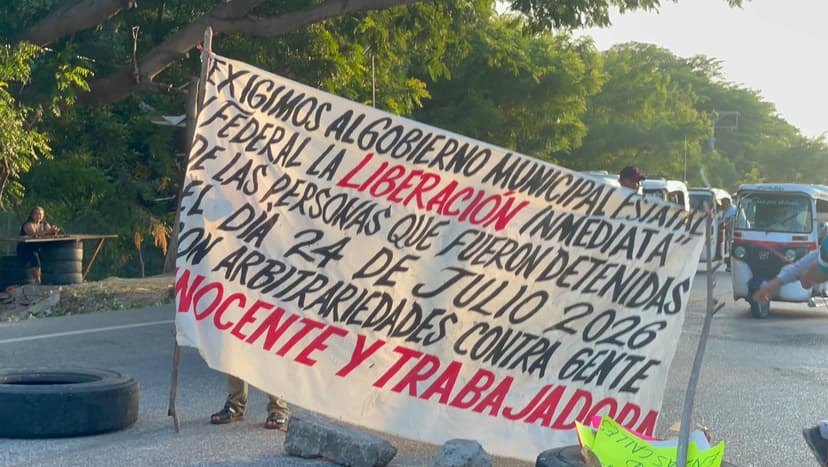 EXIGIMOS AL GOBIERNO MUNICIPAL ESTATAL
Y FEDERAL LA LIBERACIÓN INMEDIATA"
DE LAS PERSONAS QUE FUERON DETENIDAS
EL DÍA 24 DE JULIO 2026
CON ARBITRARIEDADES CONTRA GENTE
INOCENTE Y TRABAJADORA
CALLES